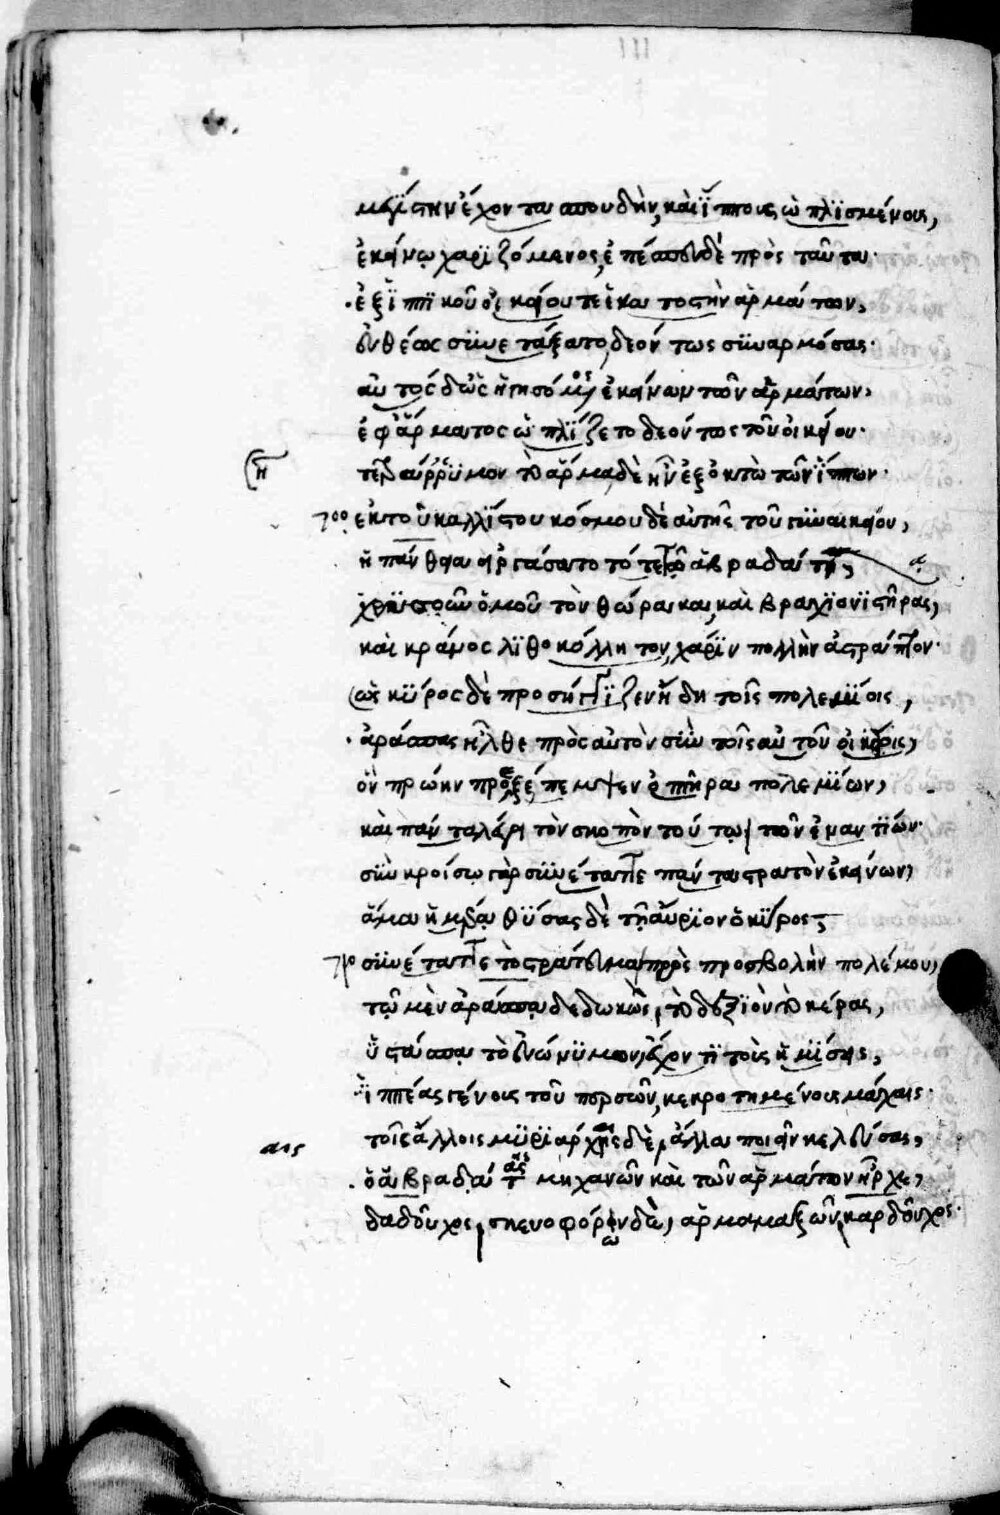 μεγίστην ἔχοντα σπουδὴν, καὶ ἵππους ὡπλισμένους,
ἐκείνῳ χαριζόμενος, ἐπέσπευδε πρὸς ταῦτα·
ἐξ ἱππικοῦ οἰκείου τε ἑκατοστὴν ἁρμάτων,
εὐθέως συνετάξατο, δεόντως συναρμόσας·
αὐτὸς δ' ὡς ἡγησόμενος ἐκείνων τῶν ἁρμάτων,
ἐφ' ἅρματος ὡπλίζετο δεόντως τοῦ οἰκείου·
τετράρρυμον τὸ ἅρμα δὲ ἦν ἐξ ὀκτὼ τῶν ἵππων·
700 ἐκ τοῦ καλλίστου κόσμου δὲ αὐτῆς τοῦ γυναικείου,
ἡ πάνθεια εἰργάσατο τότε τῷ ἀβραδάτῃ,
χρυσοῦν ὁμοῦ τὸν θώρακα, καὶ βραχιονιστῆρας,
καὶ κράνος λιθοκόλλητον, χάριν πολλὴν ἀστράπτον·
ὡς κύρος δὲ προσήγγιζεν ἤδη τοῖς πολεμίοις,
ἀράσπας ἦλθε πρὸς αὐτὸν σὺν τοῖς αὐτοῦ οἰκείοις,
ὃν πρώην προεξέπεμψεν ὀπτῆρα πολεμίων,
καὶ πάντα λέγει τὸν σκοπὸν τούτῳ τῶν ἐναντίων·
σὺν κροίσῳ γὰρ συνέταττε πάντα στρατὸν ἐκείνων,
ἅμα ἡμέρᾳ θύσας δὲ τῇ αὔριον ὁ κύρος
710 συνέταττε τὸ στράτευμα πρὸς προσβολὴν πολέμου,
τῷ μὲν ἀράσπᾳ δεδωκὼς, τὸ δεξιὸν τὸ κέρας,
ὑστάσπᾳ τὸ εὐώνυμον, ἔχοντι τοὺς ἡμίσεις,
ἱππέας γένους τοῦ περσῶν, κεκροτημένους μάχαις·
τοῖς ἄλλοις μυριάρχαις δὲ, ἄλλα ποιεῖν κελεύσας,
αις
ὁ ἀβραδάτας μηχανῶν καὶ τῶν ἁρμάτων ἦρχε,
δαδοῦχος, σκευοφόρων δὲ, ἁρμαμαξῶν, καρδοῦχος·